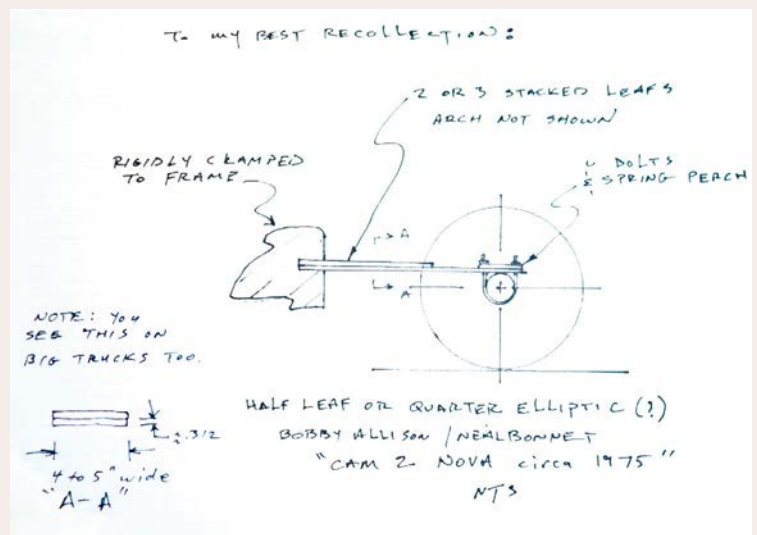 To MY BEST RECOLLECTION:
2 OR 3 STACKED LEAFS
ARCH NOT SHOWN
RIGIDLY CLAMPED
TO FRAME
U BOLTS
& SPRING PERCH
A
A
NOTE: YOU
SEE THIS ON
BIG TRUCKS TOO.
.312
4 to 5" wide
"A-A"
HALF LEAF OR QUARTER ELLIPTIC (?)
BOBBY ALLISON / NEAL BONNET
"CAM 2 NOVA circa 1975"
NTS